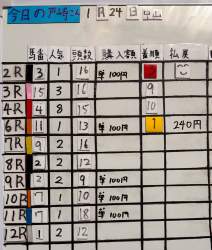 今日の戸崎さん 1月24日 中山
馬番 人気 頭数 購入額 着順 払戻
2R 3 1 16 単100円
3R 15 3 16 9
4R 4 8 15 10
6R 11 1 13 単100円 1 240円
7R 9 2 16
8R 2 2 12
9R 2 2 単100円
10R 1 10 単100円
11R 1 18 単100円
12R 1 2 12